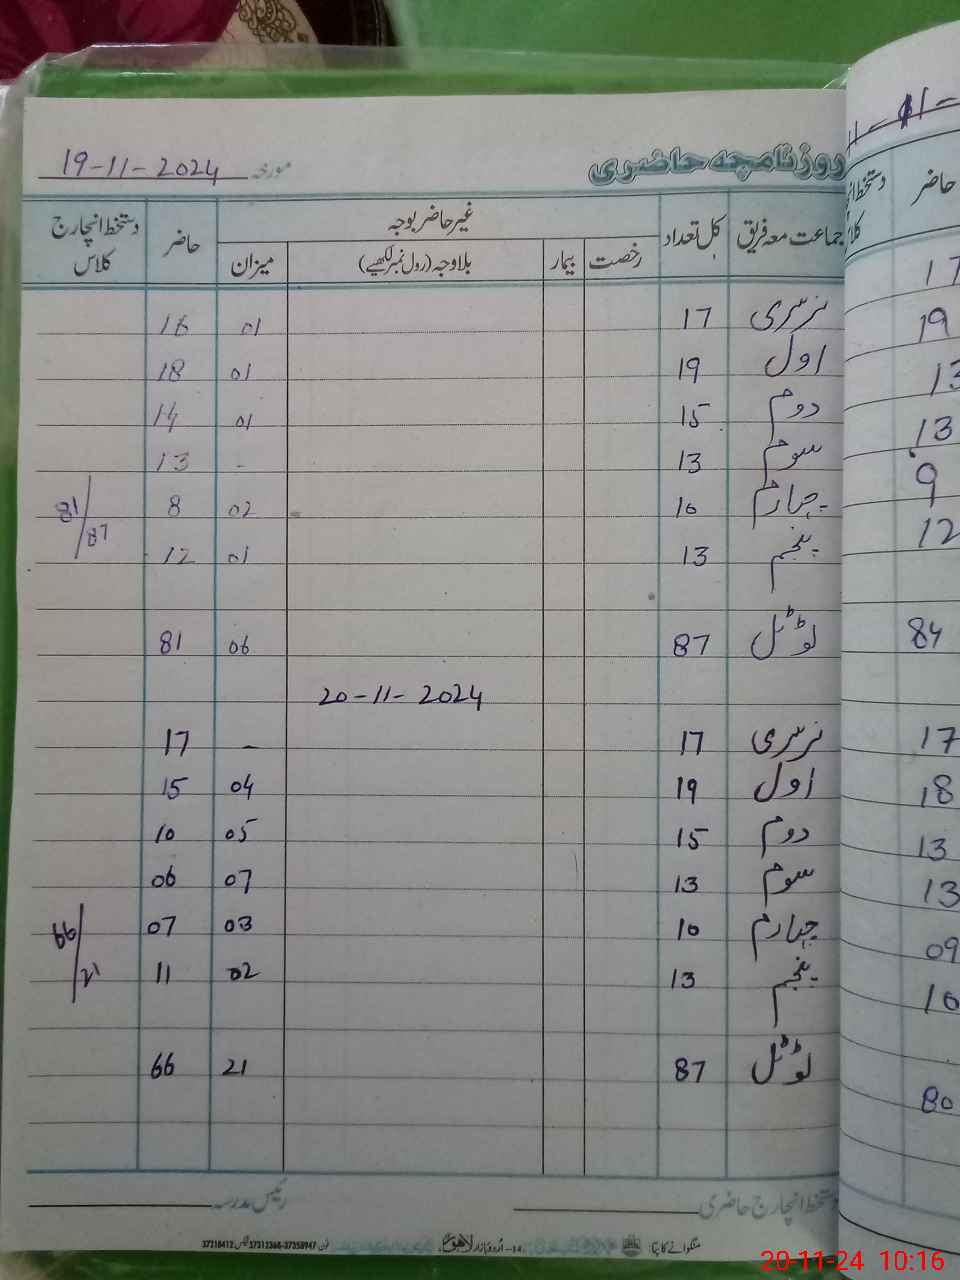 روزنامچہ حاضری مورخہ 19-11-2024
جماعت معہ فریق کل تعداد غیر حاضر بوجہ حاضر دستخط انچارج کلاس
رخصت بیمار بلاوجہ (رول نمبر لکھیے) میزان
نرسری 17 01 16
اول 19 01 18
دوم 15 01 14
سوم 13 - 13
چہارم 10 02 8 81/87
پنجم 13 01 12
ٹوٹل 87 06 81
20-11-2024
نرسری 17 - 17
اول 19 04 15
دوم 15 05 10
سوم 13 07 06
چہارم 10 03 07 66/21
پنجم 13 02 11
ٹوٹل 87 21 66
دستخط انچارج حاضری رئیس مدرسہ
منگوانے کا پتہ 14- اُردو بازار لاہور فون 37358947-37312368 فیکس 37218412
حاضر
17
19
13
13
9
12
84
17
18
13
13
09
10
80
20-11-24 10:16